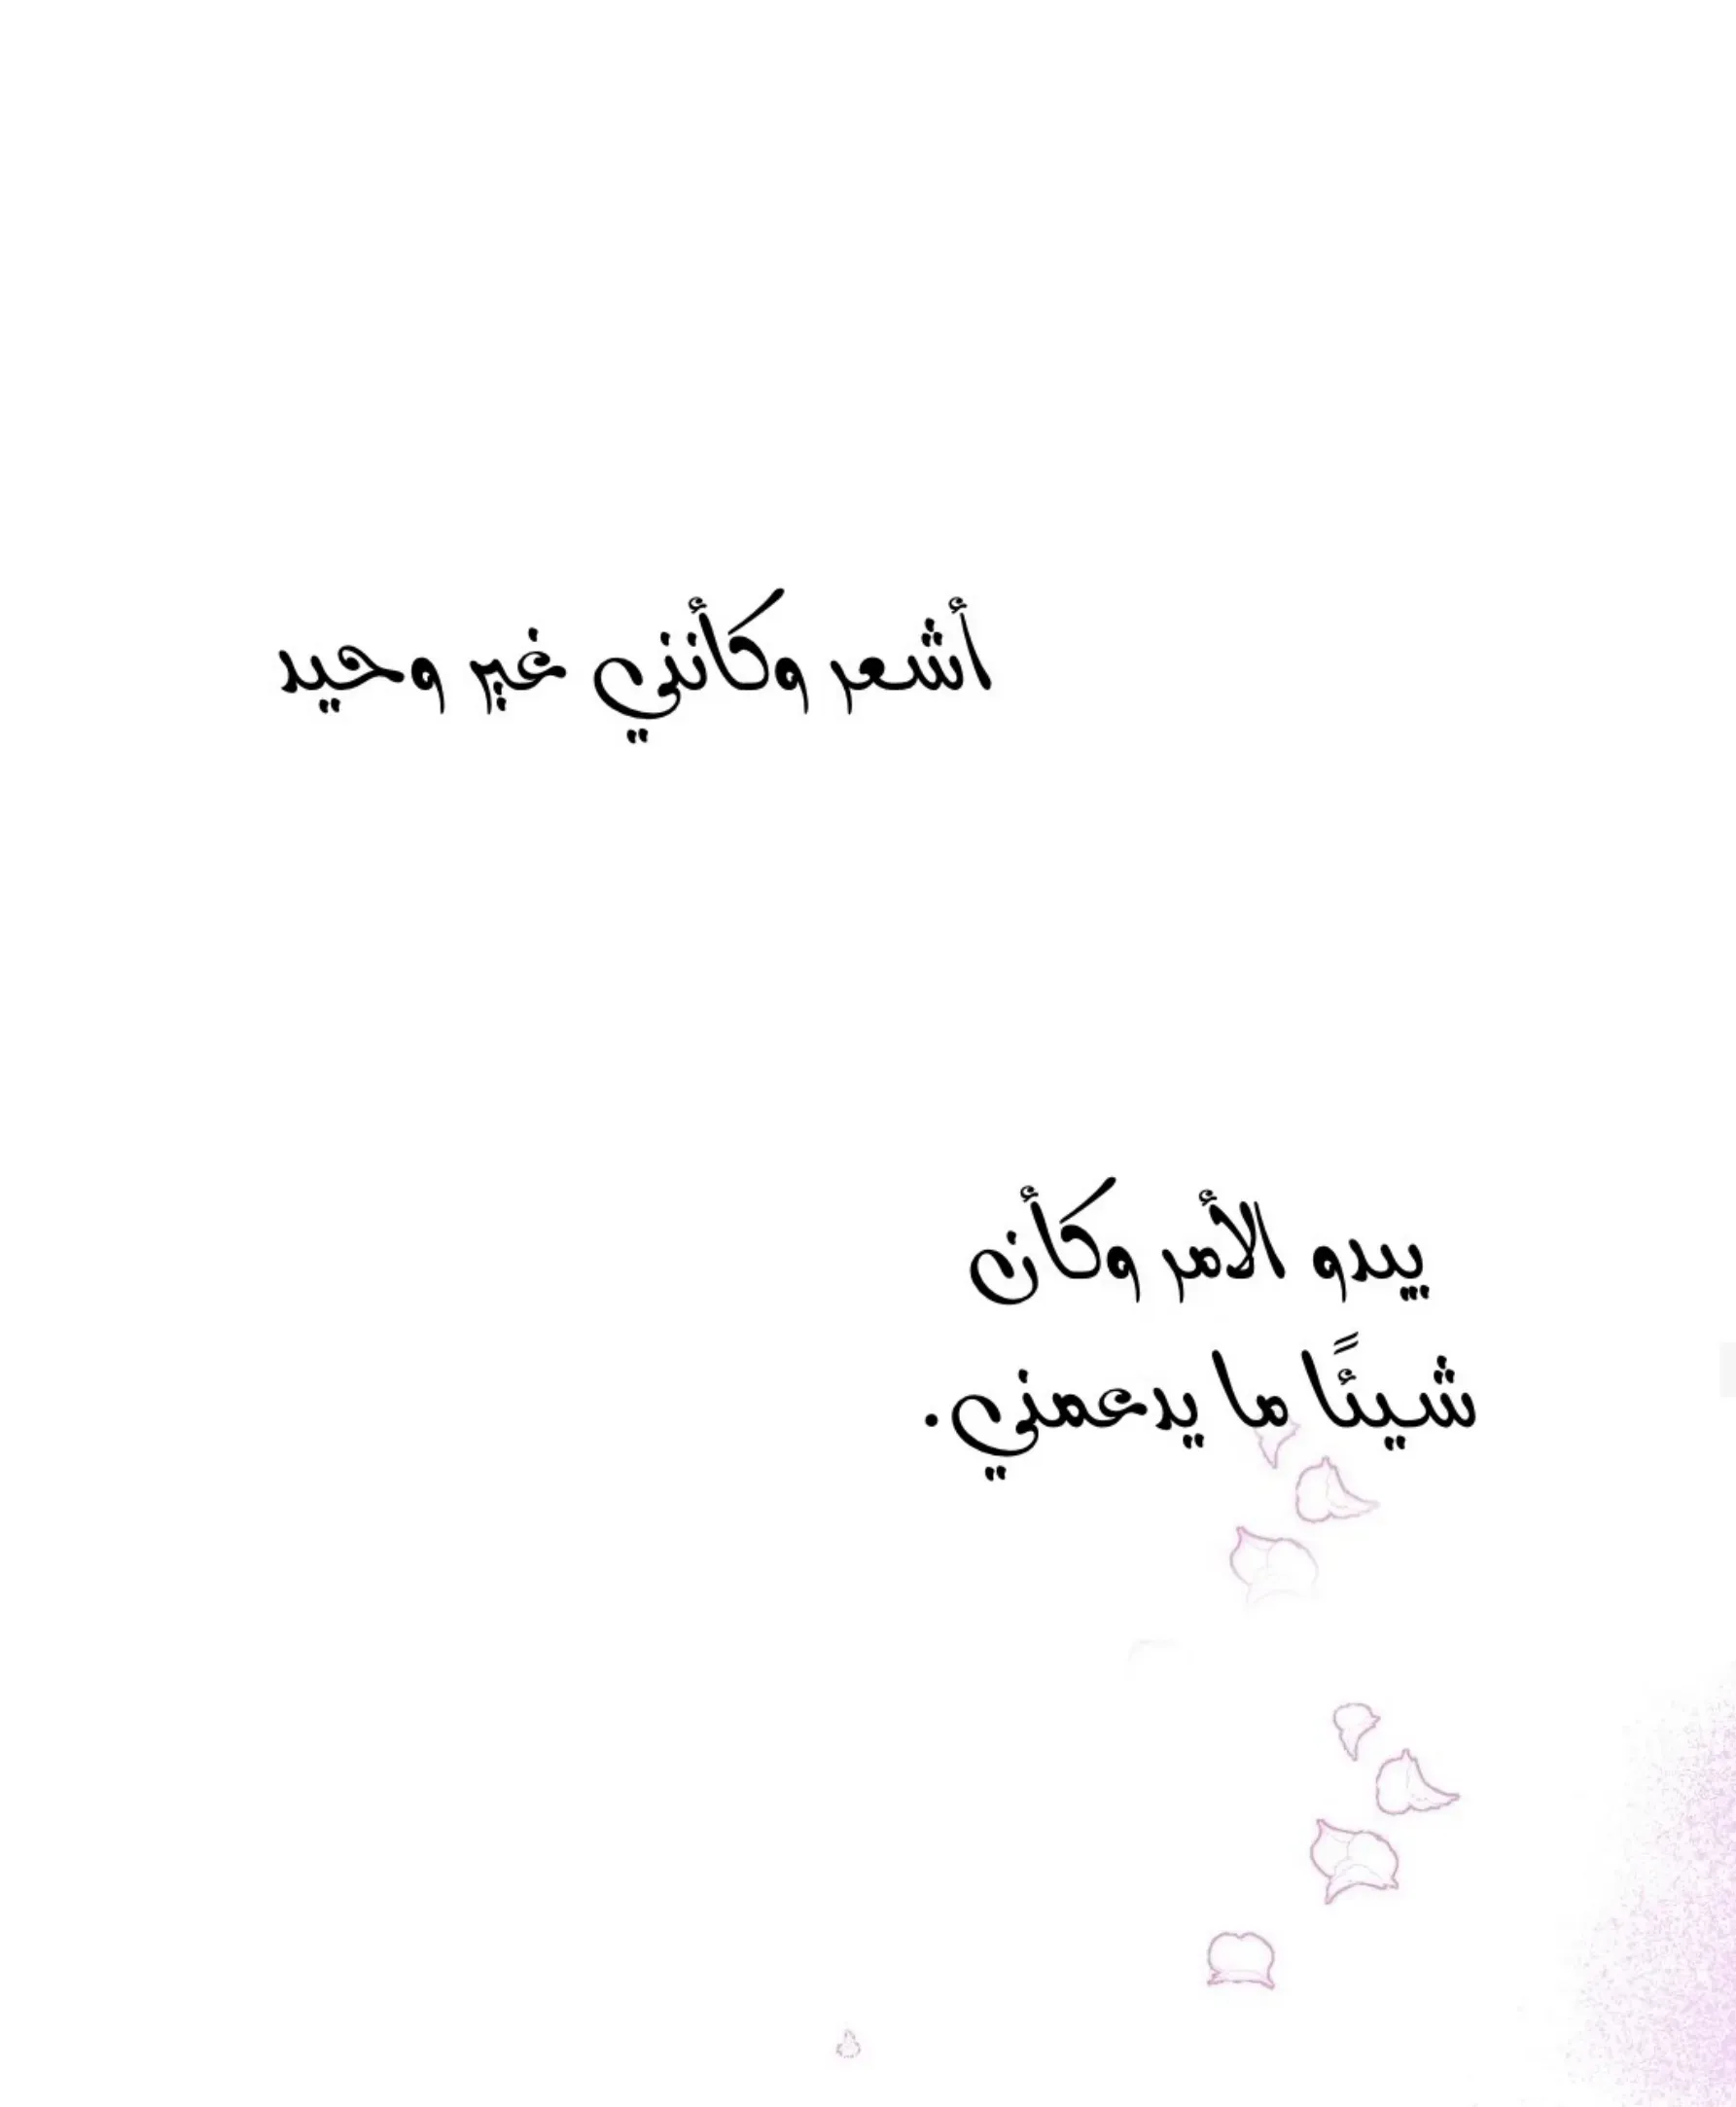 أشعر وكأنني غير وحيد
يبدو الأمر وكأن
شيئًا ما يدعمني.